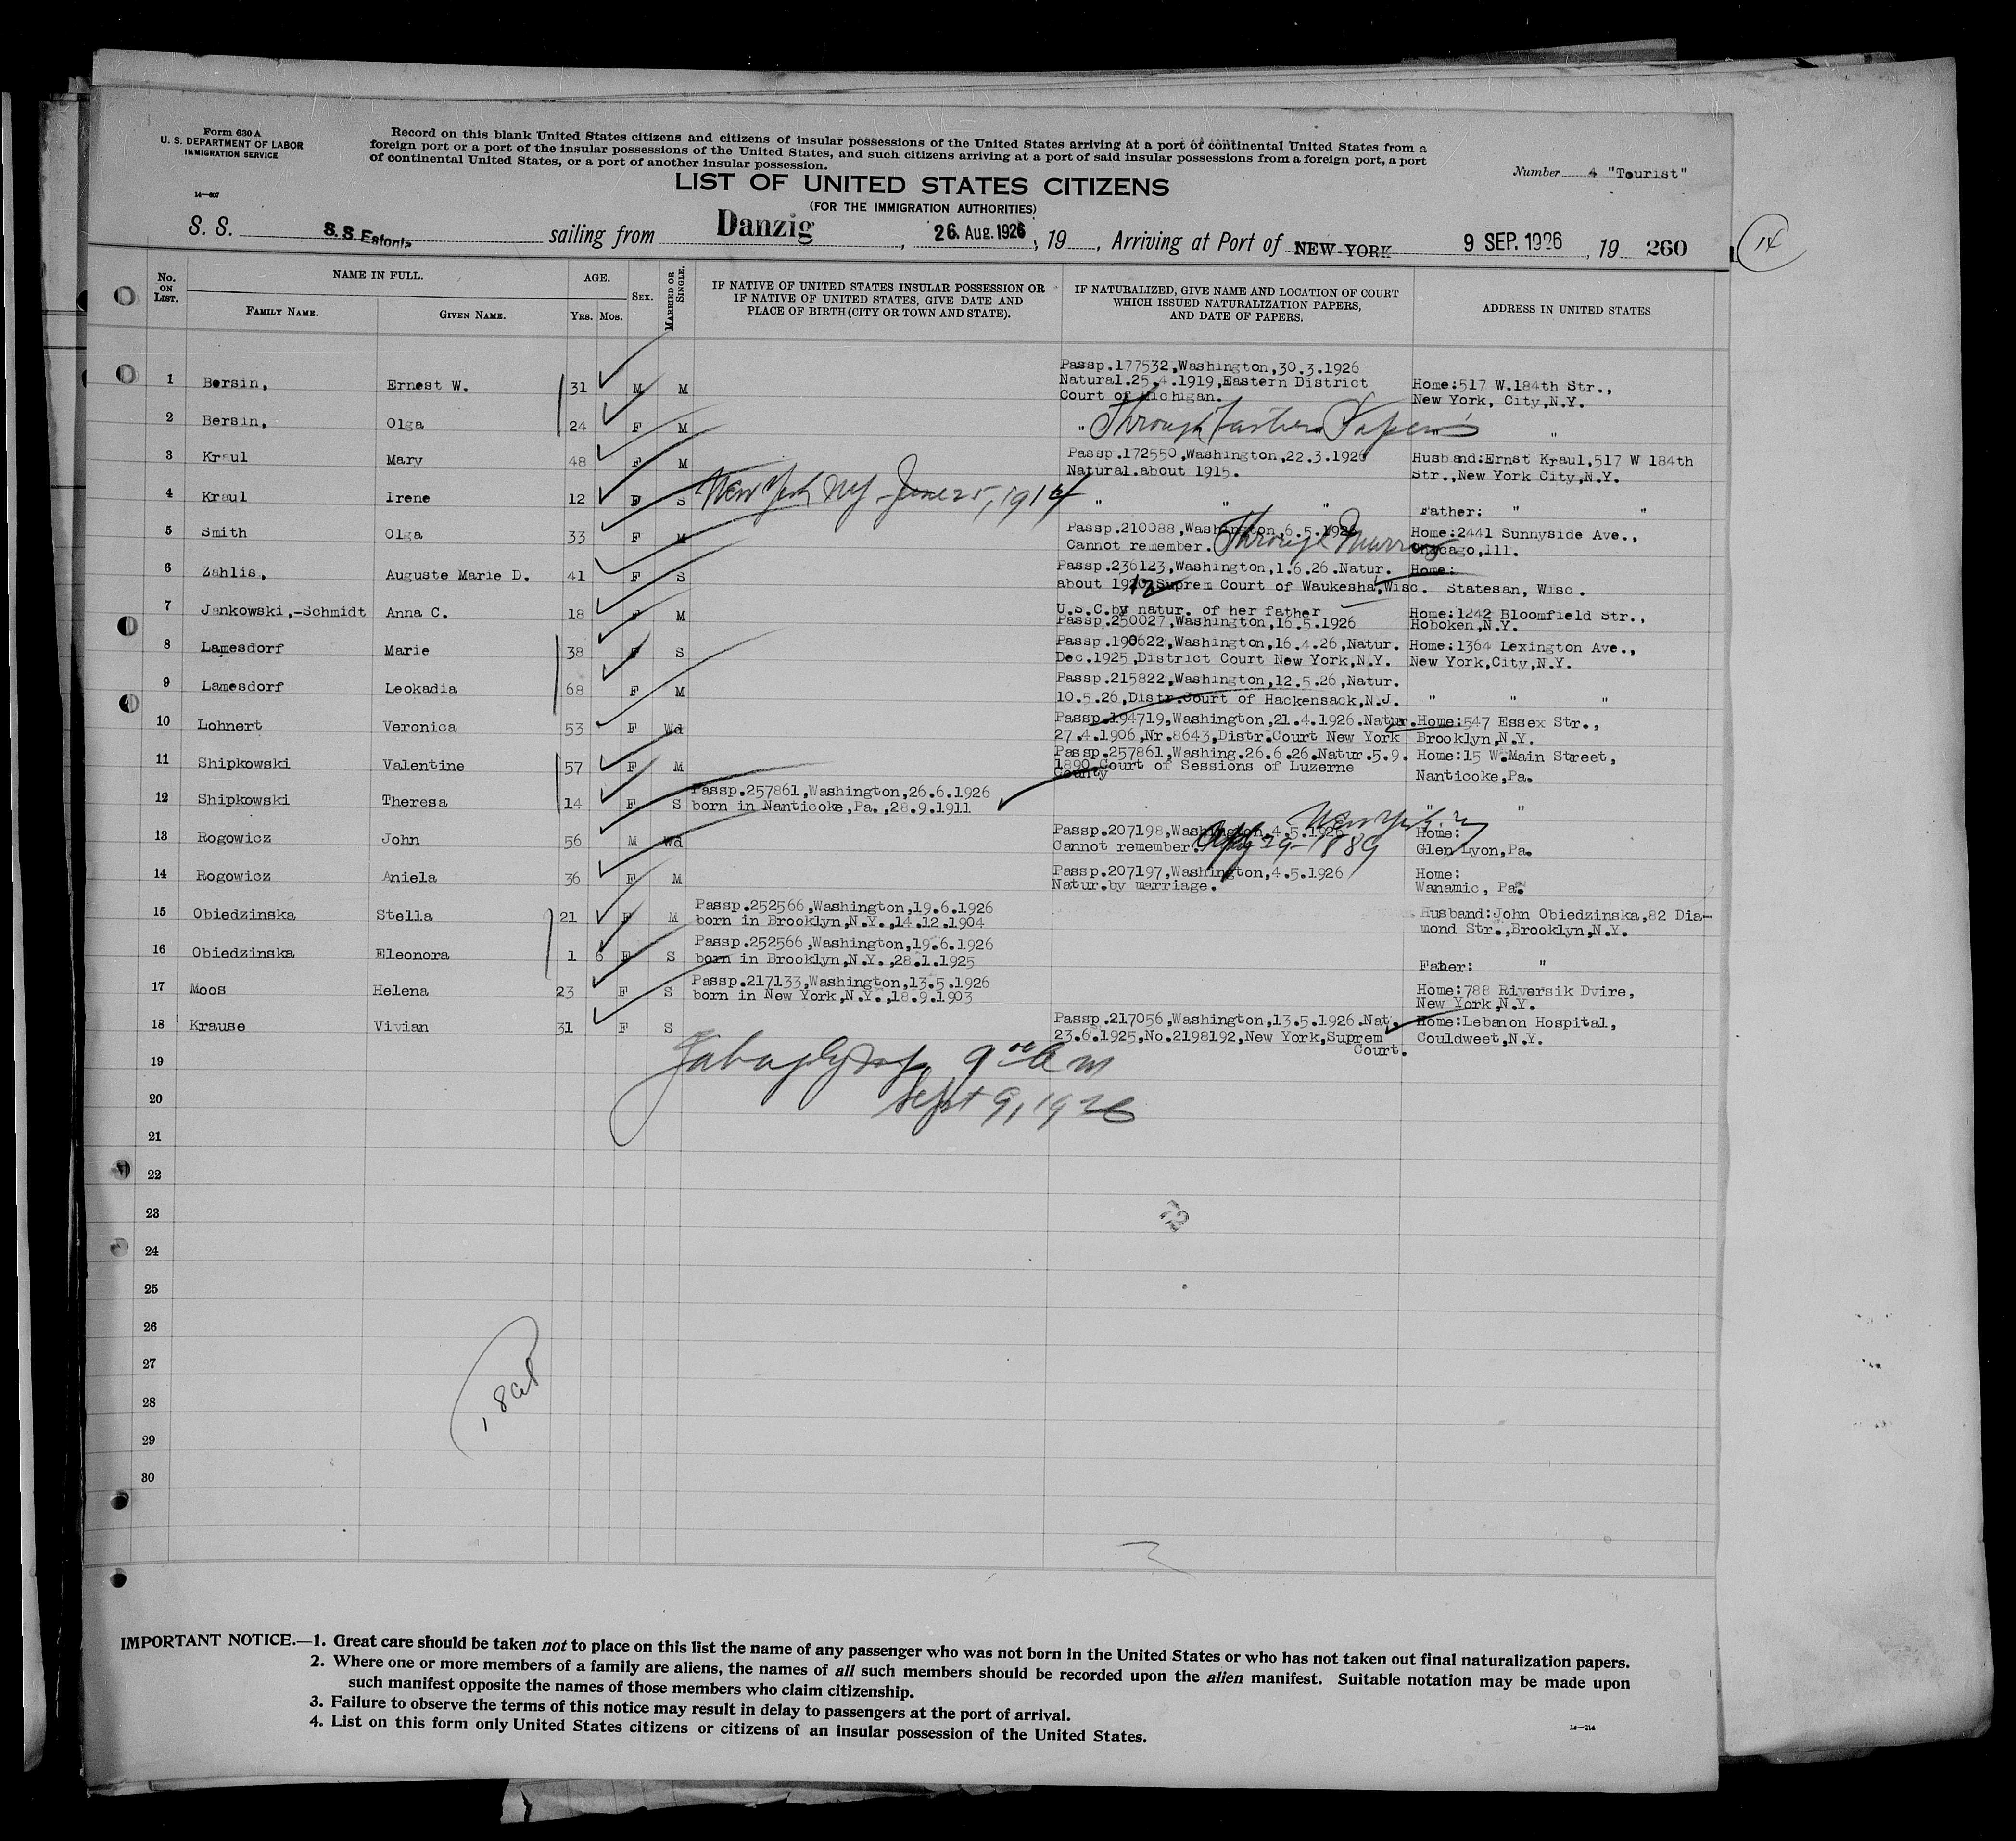 Form 630 A
U. S. DEPARTMENT OF LABOR
IMMIGRATION SERVICE
14—607
Record on this blank United States citizens and citizens of insular possessions of the United States arriving at a port of continental United States from a
foreign port or a port of the insular possessions of the United States, and such citizens arriving at a port of said insular possessions from a foreign port, a port
of continental United States, or a port of another insular possession.
Number 4 "Tourist"
LIST OF UNITED STATES CITIZENS
(FOR THE IMMIGRATION AUTHORITIES)
S. S. S.S. Estonia sailing from Danzig, 26. Aug. 1926, 19 , Arriving at Port of NEW-YORK 9 SEP. 1926, 19 260
14
No. ON LIST. NAME IN FULL. AGE. SEX. MARRIED OR SINGLE. IF NATIVE OF UNITED STATES INSULAR POSSESSION OR IF NATIVE OF UNITED STATES, GIVE DATE AND PLACE OF BIRTH (CITY OR TOWN AND STATE). IF NATURALIZED, GIVE NAME AND LOCATION OF COURT WHICH ISSUED NATURALIZATION PAPERS, AND DATE OF PAPERS. ADDRESS IN UNITED STATES
FAMILY NAME. GIVEN NAME. YRS. MOS.
1 Bersin, Ernest W. 31 M M Passp.177532,Washington,30.3.1926
Natural.25.4.1919,Eastern District Home:517 W.184th Str.,
Court of Michigan. New York, City,N.Y.
2 Bersin, Olga 24 F M " Through Papers "
3 Kraul Mary 48 F M Passp.172550,Washington,22.3.1926 Husband:Ernst Kraul,517 W 184th
Natural.about 1915. Str.,New York City,N.Y.
4 Kraul Irene 12 F S New York NY - June 25, 1914 " " " Father: " "
5 Smith Olga 33 F M Passp.210088,Washington,6.5.1926 Home:2441 Sunnyside Ave.,
Cannot remember. Through Chicago,Ill.
6 Zahlis, Auguste Marie D. 41 F S Passp.236123,Washington,1.6.26.Natur. Home:
about 1920,Suprem Court of Waukesha,Wisc. Statesan, Wisc.
12
7 Jankowski,-Schmidt Anna C. 18 F M U.S.C.by natur. of her father Home:1242 Bloomfield Str.,
Passp.250027,Washington,16.5.1926 Hoboken,N.Y.
8 Lamesdorf Marie 38 F S Passp.190622,Washington,16.4.26,Natur. Home:1364 Lexington Ave.,
Dec.1925,District Court New York,N.Y. New York,City,N.Y.
9 Lamesdorf Leokadia 68 F M Passp.215822,Washington,12.5.26,Natur.
10.5.26,Distr.Court of Hackensack,N.J. " " "
10 Lohnert Veronica 53 F Wd Passp.194719,Washington,21.4.1926.Natur. Home:547 Essex Str.,
27.4.1906,Nr.8643,Distr.Court New York Brooklyn,N.Y.
11 Shipkowski Valentine 57 F M Passp.257861,Washing.26.6.26.Natur.5.9. Home:15 W.Main Street,
1890,Court of Sessions of Luzerne Nanticoke,Pa.
County
12 Shipkowski Theresa 14 F S Passp.257861,Washington,26.6.1926
born in Nanticoke,Pa.,28.9.1911 " "
13 Rogowicz John 56 M Wd Passp.207198,Washington,4.5.1926 Home:
Cannot remember. 29-1889 New York Glen Lyon,Pa.
14 Rogowicz Aniela 36 F M Passp.207197,Washington,4.5.1926 Home:
Natur.by marriage. Wanamic, Pa.
15 Obiedzinska Stella 21 F M Passp.252566,Washington,19.6.1926 Husband:John Obiedzinska,82 Dia-
born in Brooklyn,N.Y.,14.12.1904 mond Str.,Brooklyn,N.Y.
16 Obiedzinska Eleonora 1 6 F S Passp.252566,Washington,19.6.1926
born in Brooklyn,N.Y.,28.1.1925 Faher: "
17 Moos Helena 23 F S Passp.217133,Washington,13.5.1926 Home:788 Riversik Dvire,
born in New York,N.Y.,18.9.1903 New York,N.Y.
18 Krause Vivian 31 F S Passp.217056,Washington,13.5.1926.Nat. Home:Lebanon Hospital,
23.6.1925,No.2198192,New York,Suprem Couldweet,N.Y.
Court.
19
9 00 A m
20
Sept 9, 1926
21
22
23
24
25
26
27
28
29
30
IMPORTANT NOTICE.—1. Great care should be taken not to place on this list the name of any passenger who was not born in the United States or who has not taken out final naturalization papers.
2. Where one or more members of a family are aliens, the names of all such members should be recorded upon the alien manifest. Suitable notation may be made upon
such manifest opposite the names of those members who claim citizenship.
3. Failure to observe the terms of this notice may result in delay to passengers at the port of arrival.
4. List on this form only United States citizens or citizens of an insular possession of the United States.
14—214